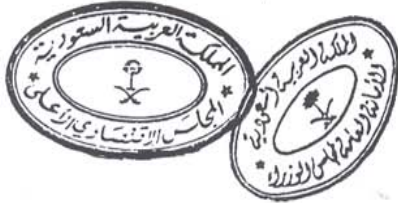 المملكة العربية السعودية
المجلس الاقتصادي الأعلى
المملكة العربية السعودية
الأمانة العامة لمجلس الوزراء